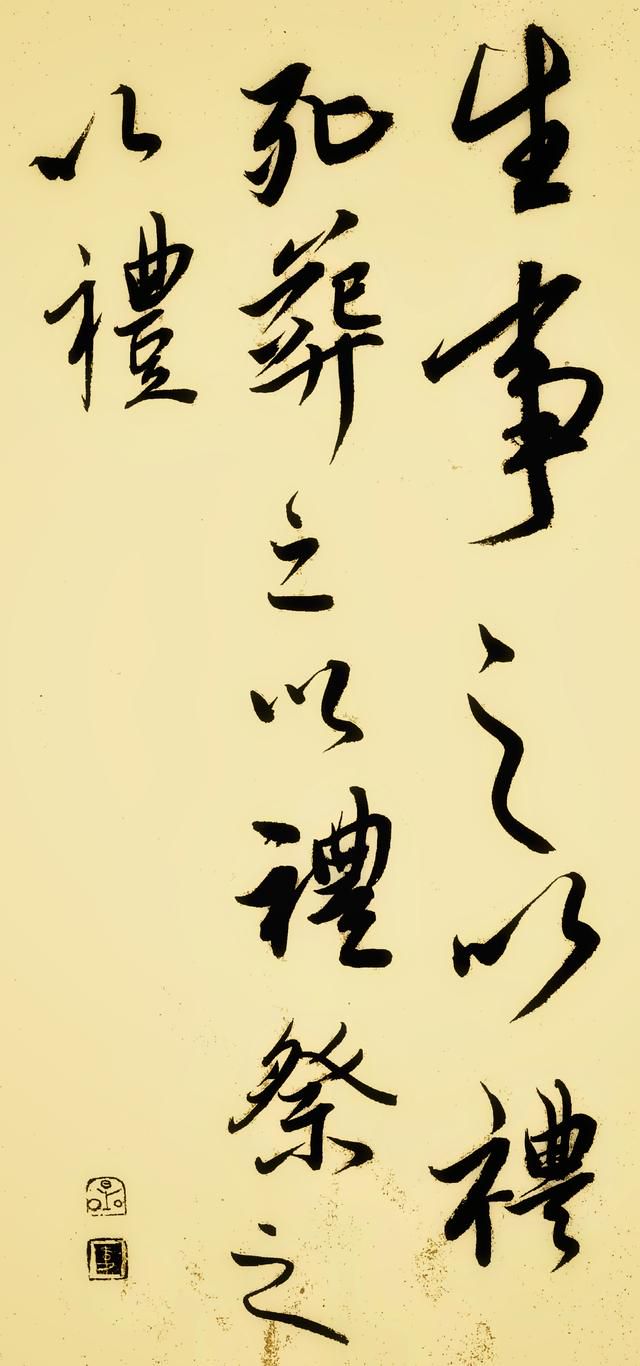 生事之以禮
死葬之以禮祭之
以禮